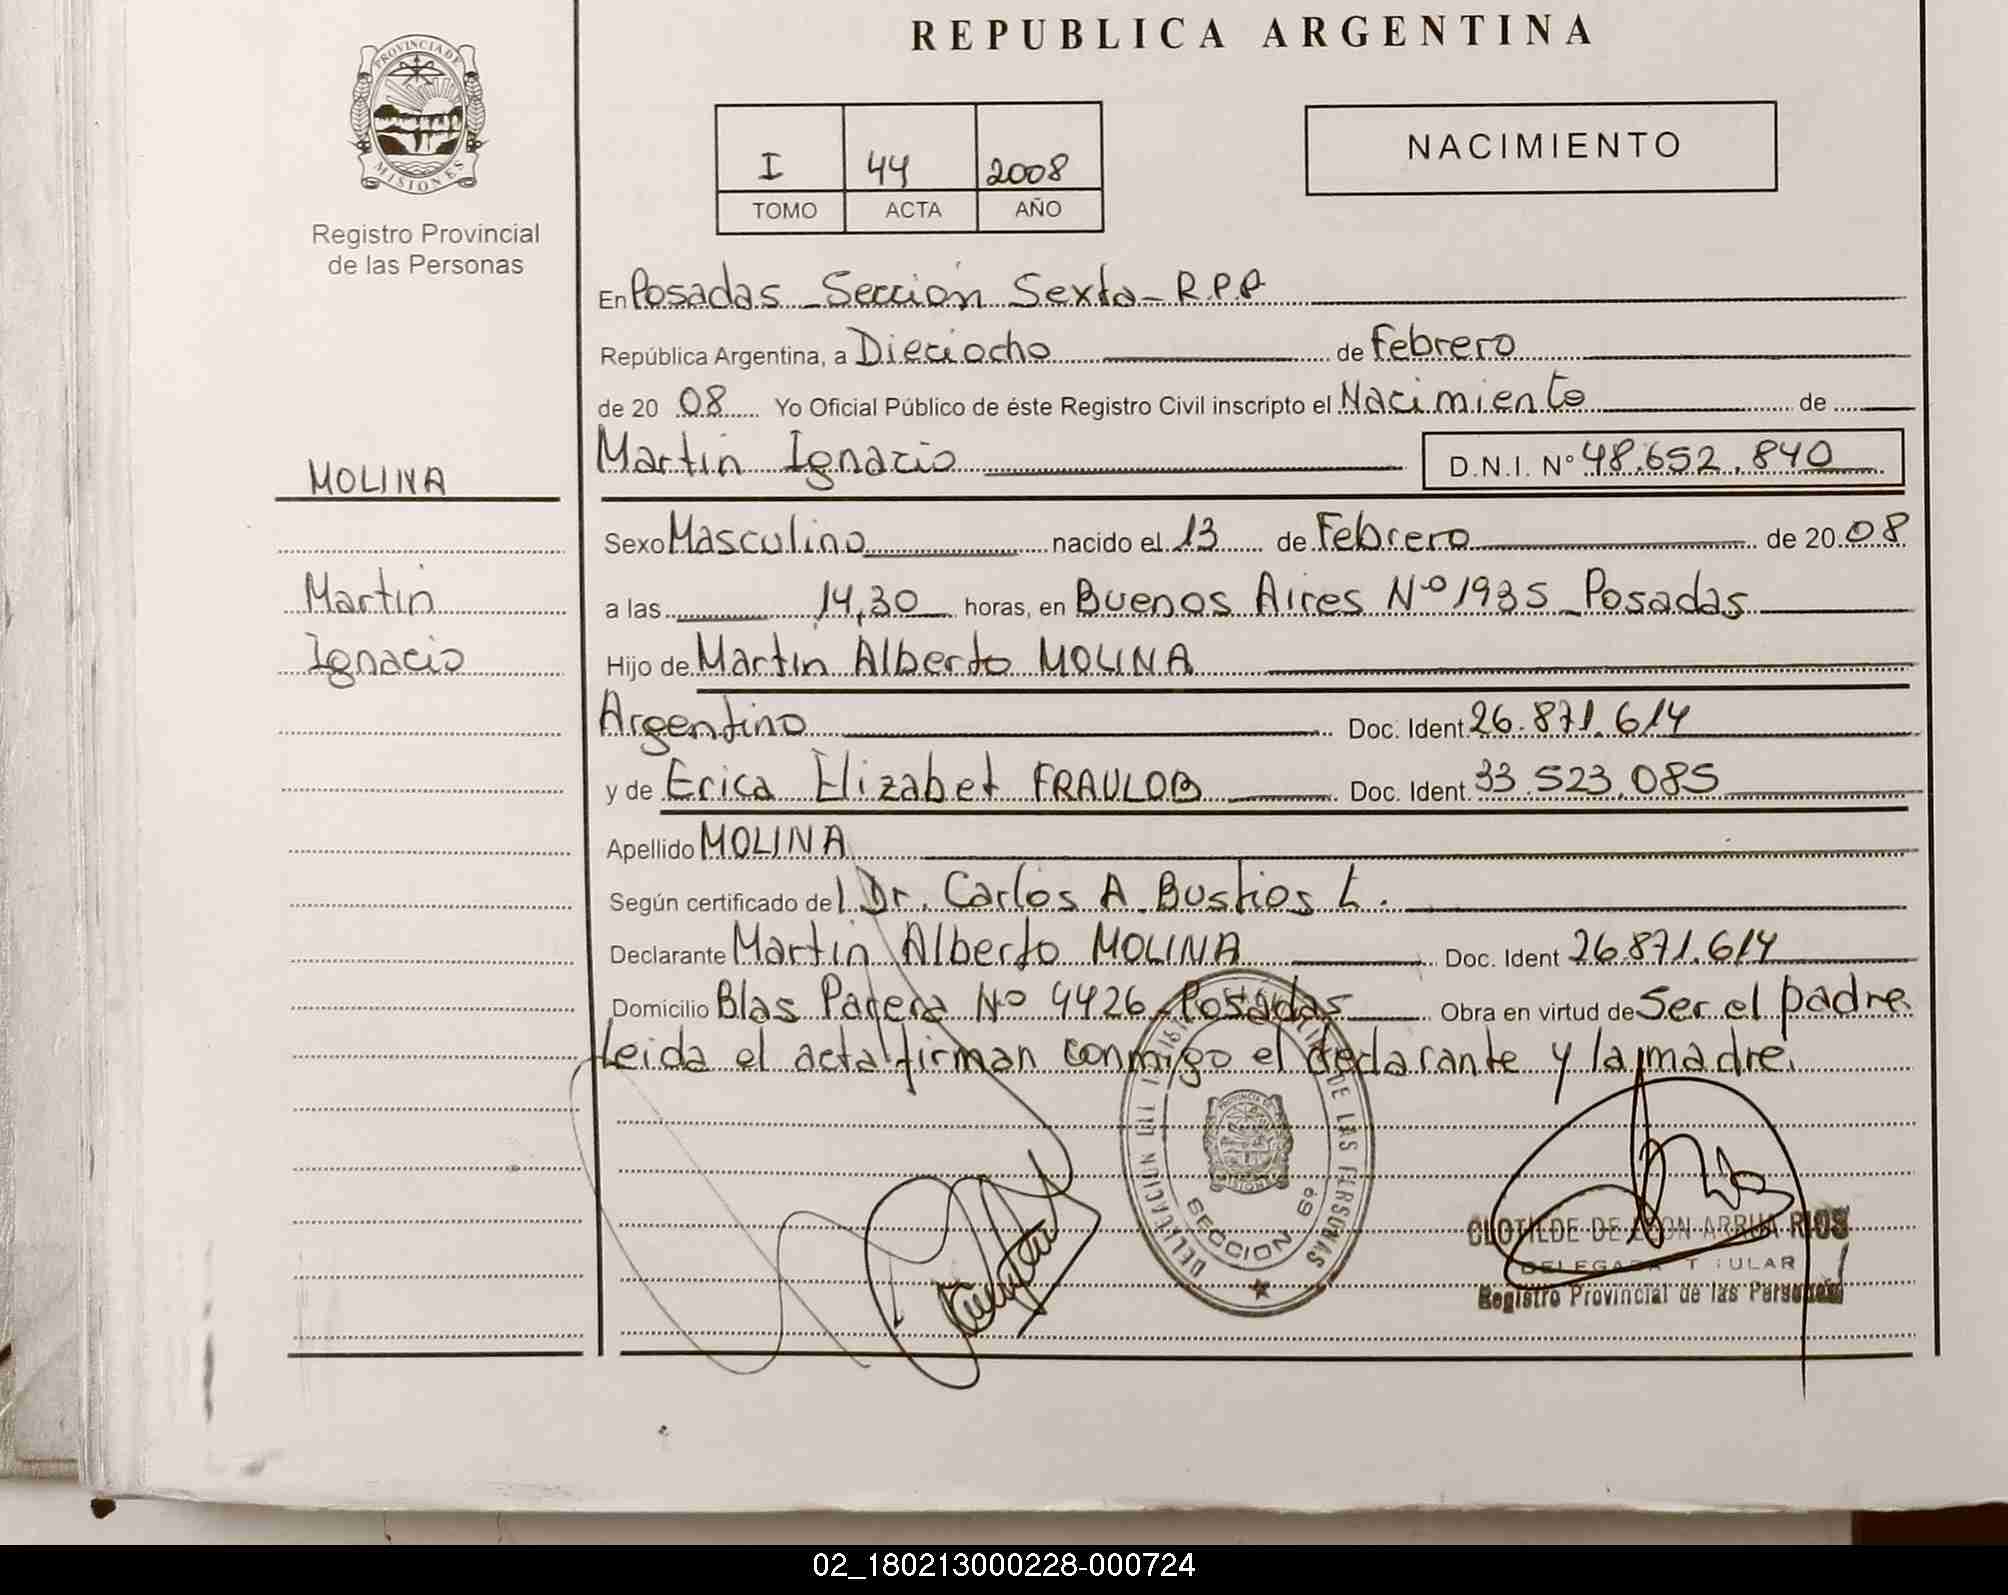 REPUBLICA ARGENTINA
PROVINCIA DE
MISIONES
Registro Provincial
de las Personas
I 44 2008
TOMO ACTA AÑO
NACIMIENTO
En Posadas - Sección Sexta - R.P.P
República Argentina, a Dieciocho de Febrero
de 20 08 Yo Oficial Público de éste Registro Civil inscripto el Nacimiento de
Martin Ignacio D.N.I. Nº 48.652.840
MOLINA
Sexo Masculino nacido el 13 de Febrero de 20 08
Martin
a las 14,30 horas, en Buenos Aires Nº 1935 - Posadas
Ignacio
Hijo de Martin Alberto MOLINA
Argentino Doc. Ident. 26.871.614
y de Erica Elizabet FRAULOB Doc. Ident. 33.523.085
Apellido MOLINA
Según certificado del Dr. Carlos A. Bustios L.
Declarante Martin Alberto MOLINA Doc. Ident 26.871.614
Domicilio Blas Parera Nº 4426 - Posadas Obra en virtud de Ser el padre
Leida el acta firman conmigo el declarante y la madre.
DE LAS PERSONAS
SECCION 6º
CLOTILDE DE LEON ARRUA RIOS
DELEGADA TITULAR
Registro Provincial de las Personas
02_180213000228-000724